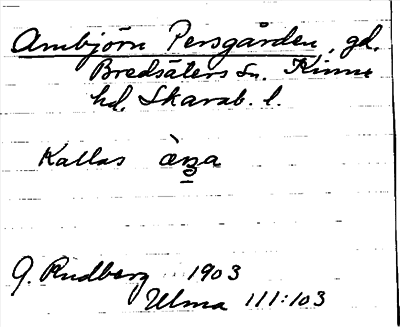 Arnbjörn Persgården, gd.
Bredsäters sn. Kinne
hd. Skarab. l.
Kallas
G. Rudberg 1903
Ulma 111:103